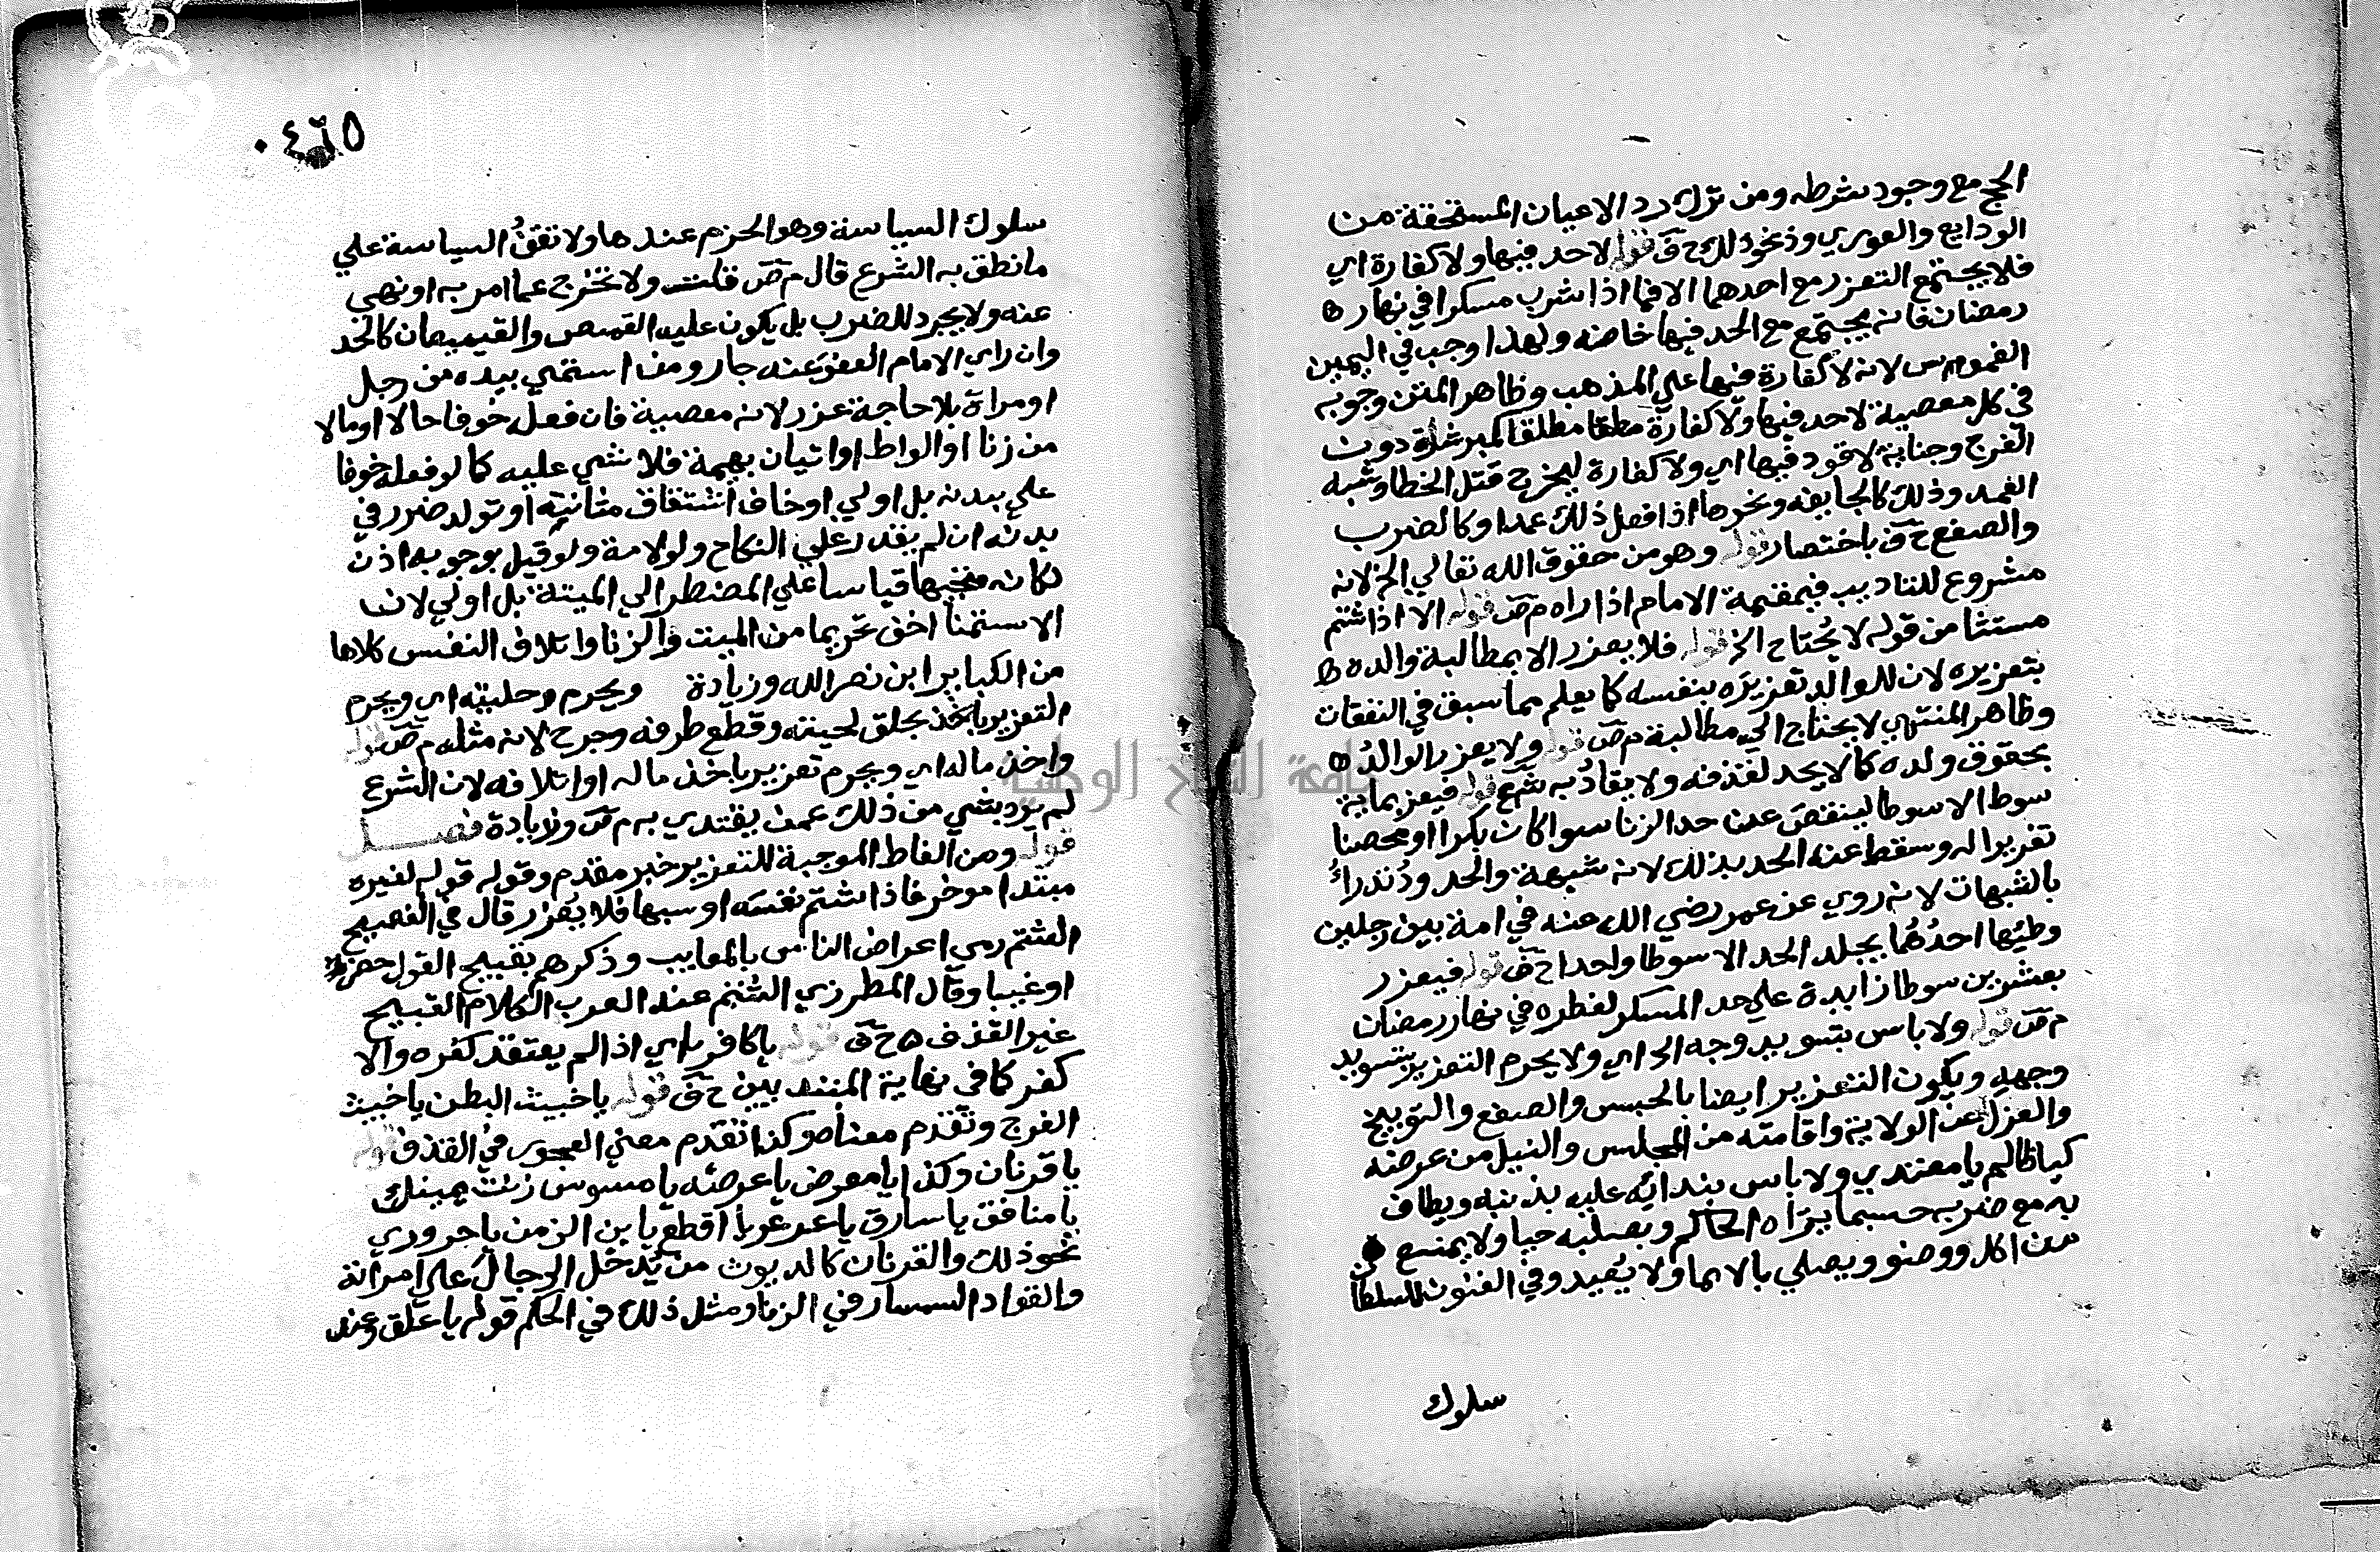 الحج مع وجود شرطه ومن ترك رد الاعيان المستحقة من
الودايع والعوري ونحو ذلك ح ف قوله لاحد فيها ولا كفارة اي
فلا يجتمع التعزير مع احدهما الا فيما اذا شرب مسكرا في نهار ه
رمضان فانه يجتمع مع الحد فيها خاصة ولهذا وجب في اليمين
الغموس لانه لا كفارة فيها علي المذهب وظاهر المتن وجوبه
في كل معصية لاحد فيها ولا كفارة مطلقا كمباشرة دون
الفرج وجناية لا قود فيها اي ولا كفارة ليخرج قتل الخطا وشبه
العمد وذلك كالجايفه ونحوها اذا فعل ذلك عمدا وكالضرب
والصفع ح ف باختصار قوله وهو من حقوق الله تعالي الخ لانه
مشروع للتاديب فيقيمه الامام اذا راه م ص قوله الا اذا شتم
مستثنا من قوله لا يحتاج الخ قوله فلا يعزر الا بمطالبة والده ه
بتعزيره لان للوالد تعزيره بنفسه كما يعلم مما سبق في النفقات
وظاهر المنتهي لا يحتاج الي مطالبة م ص قوله ولا يعزر الوالد ه
بحقوق ولده كما لا يحد لقذفه ولا يقاد به شرع قوله فيعزر بماية
سوط الا سوطا لينقص عن حد الزنا سوا كان بكرا او محصنا
تعزيرا له وسقط عنه الحد بذلك لانه شبهة والحدود تدراء
بالشبهات لانه روي عن عمر رضي الله عنه في امة بين رجلين
وطئها احدهما يجلد الحد الا سوطا واحدا ح ف قوله فيعزر
بعشرين سوطا زايدة علي حد المسكر لفطره في نهار رمضان
م ص قوله ولا باس بتسويد وجه الخ اي ولا يحرم التعزير بتسويد
وجهه ويكون التعزير ايضا بالحبس والصفع والتوبيخ
والعزل عن الولاية واقامته من المجلس والنيل من عرضه
كيا ظالم يا معتدي ولا باس بندائه عليه بذنبه ويطاف
به مع ضربه حسبما يراه الحاكم وبصلبه حيا ولا يمنع
من اكل ووضو ويصلي بالايما ولا يعيد وفي الفنون للسلطان
سلوك
٤٦٥
سلوك السياسة وهو الحزم عندها ولا تقف السياسة علي
ما نطق به الشرع قال م ص قلت ولا تخرج عما امر به او نهي
عنه ولا يجرد للضرب بل يكون عليه القميص والقميصان كالحد
وان راي الامام العفو عنه جاز ومن استمني بيده من رجل
او مراة بلا حاجة عزر لانه معصية فان فعل خوفا حالا او مالا
من زنا او الواط او اتيان بهيمة فلا شي عليه كما لو فعله خوفا
علي بدنه بل اولي او خاف انشقاق مثانته او تولد ضرر في
بدنه ان لم يقدر علي النكاح ولو لامة ولو قيل بوجوبه اذن
لكان متجها قياسا علي المضطر الي الميتة بل اولي لان
الاستمنا اخف تحريما من الميتة والزنا واتلاف النفس كلاهما
من الكباير ابن نصر الله وزيادة ويحرم وحليته اي ويحرم
التعزير باخذ بحلق لحيته وقطع طرفه وجرح لانه مثله م ص قوله
واخذ ماله اي ويحرم تعزير باخذ ماله او اتلافه لان الشرع
لم يرد بشي من ذلك عمن يقتدي به م ص وزيادة فصل
قوله ومن الفاظ الموجبة للتعزير خبر مقدم وقوله قوله لغيره
مبتدا موخر فاذا شتم نفسه او سبها فلا يعزر قال في الفصيح
الشتم رمي اعراض الناس بالمعايب وذكرهم بقبيح القول حضرا
او غيبا وقال المطرزي الشتم عند العرب الكلام القبيح
غير القذف ه ح ف قوله يا كافر اي اذا لم يعتقد كفره والا
كفر كما في نهاية المبتديين ح ف قوله يا خبيث البطن يا خبيث
الفرج وتقدم معناه وكذا تقدم معني الفجور في القذف قوله
يا قرنان وكذا يا معرض يا عرصه يا مسوس زنت عينك
يا منافق يا سارق يا عرعر يا اقطع يا بن الزمن يا حروري
نحو ذلك والقرنان كالديوث من يدخل الرجال علي امراته
والقواد السمسار في الزنا ومثل ذلك في الحكم قوله يا علق وعند